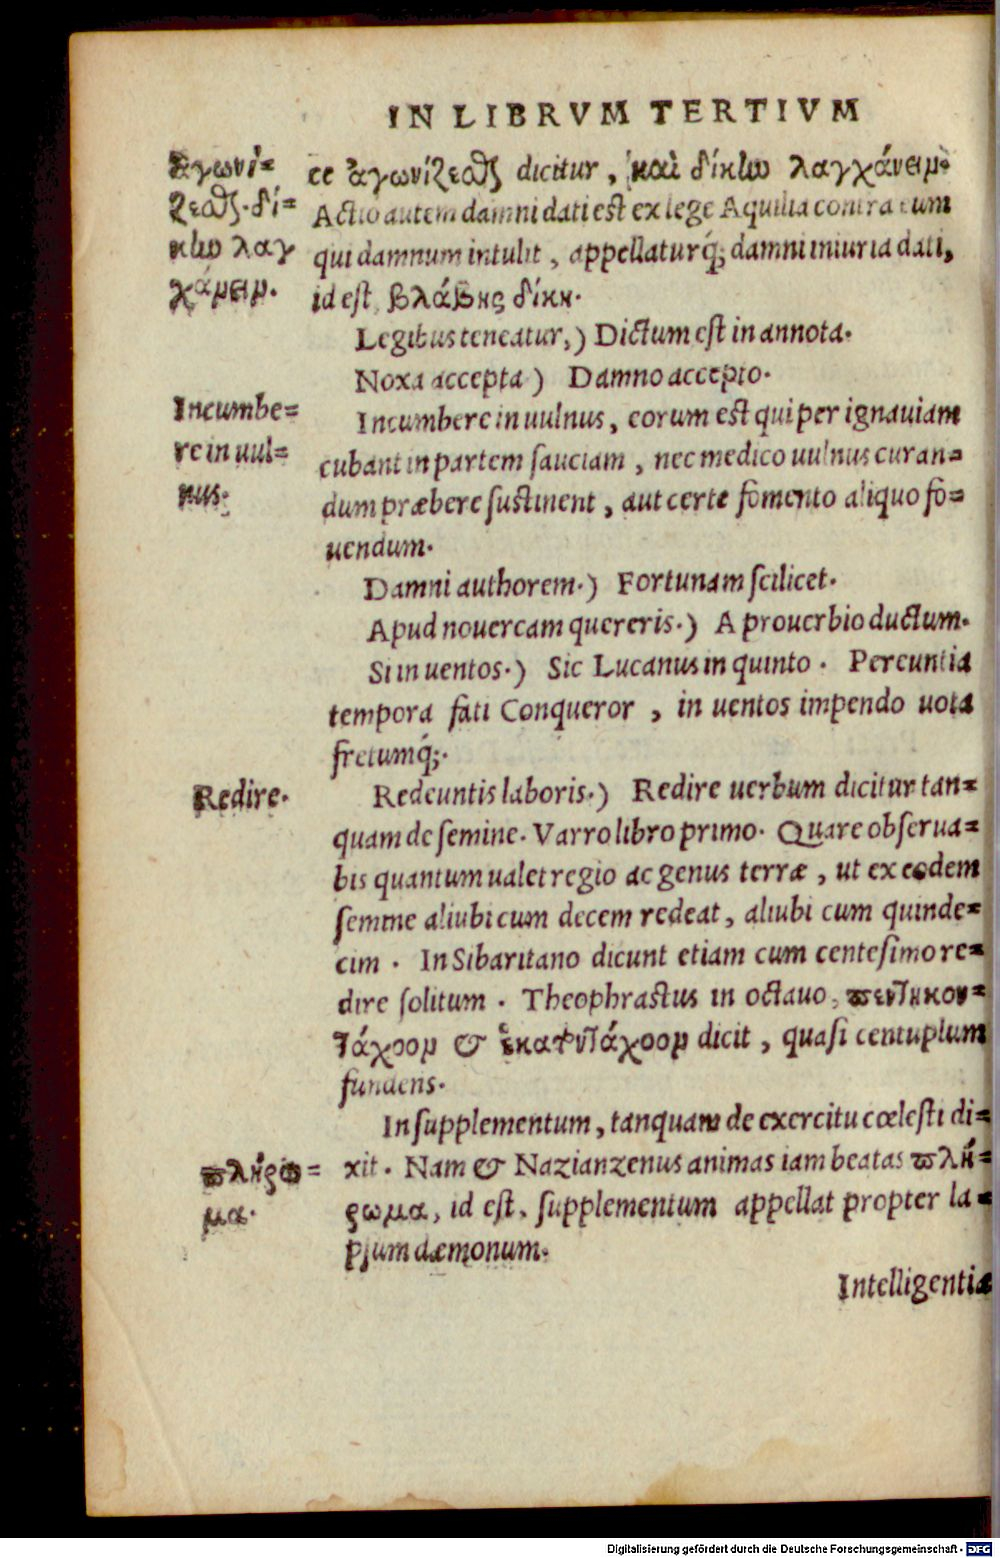 IN LIBRVM TERTIVM
ἀγωνί=
ζεσθαι. δί=
κην λαγ
χάνειν.
ce ἀγωνίζεσθαι dicitur, καὶ δίκην λαγχάνειν.
Actio autem damni dati est ex lege Aquilia contra eum
qui damnum intulit, appellaturq́; damni iniuria dati,
id est, βλάβης δίκη.
Legibus teneatur,) Dictum est in annota.
Noxa accepta) Damno accepto.
Incumbe=
re in uul=
nus.
Incumbere in uulnus, eorum est qui per ignauiam
cubant in partem sauciam, nec medico uulnus curan=
dum præbere sustinent, aut certe fomento aliquo fo=
uendum.
Damni authorem.) Fortunam scilicet.
Apud nouercam quereris.) A prouerbio ductum.
Si in uentos.) Sic Lucanus in quinto. Pereuntia
tempora fati Conqueror, in uentos impendo uota
fretumq́;.
Redire.
Redeuntis laboris.) Redire uerbum dicitur tan=
quam de semine. Varro libro primo. Quare obserua=
bis quantum ualet regio ac genus terræ, ut ex eodem
semine aliubi cum decem redeat, aliubi cum quinde=
cim. In Sibaritano dicunt etiam cum centesimo re=
dire solitum. Theophrastus in octauo, πεντηκον=
τάχοον & ἑκατοντάχοον dicit, quasi centuplum
fundens.
In supplementum, tanquam de exercitu cœlesti di=
πλήρω=
μα.
xit. Nam & Nazianzenus animas iam beatas πλή=
ρωμα, id est, supplementum appellat propter la=
psum dæmonum.
Intelligentia
Digitalisierung gefördert durch die Deutsche Forschungsgemeinschaft - DFG